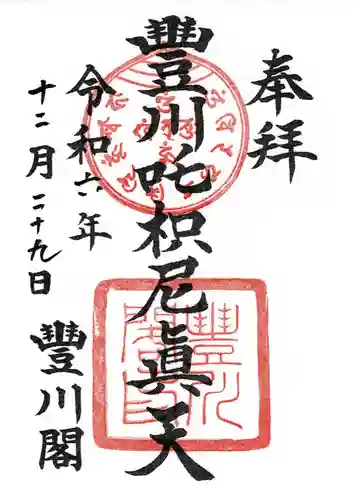 奉拝
豐川吒枳尼眞天
令和六年
十二月二十九日
豐川閣